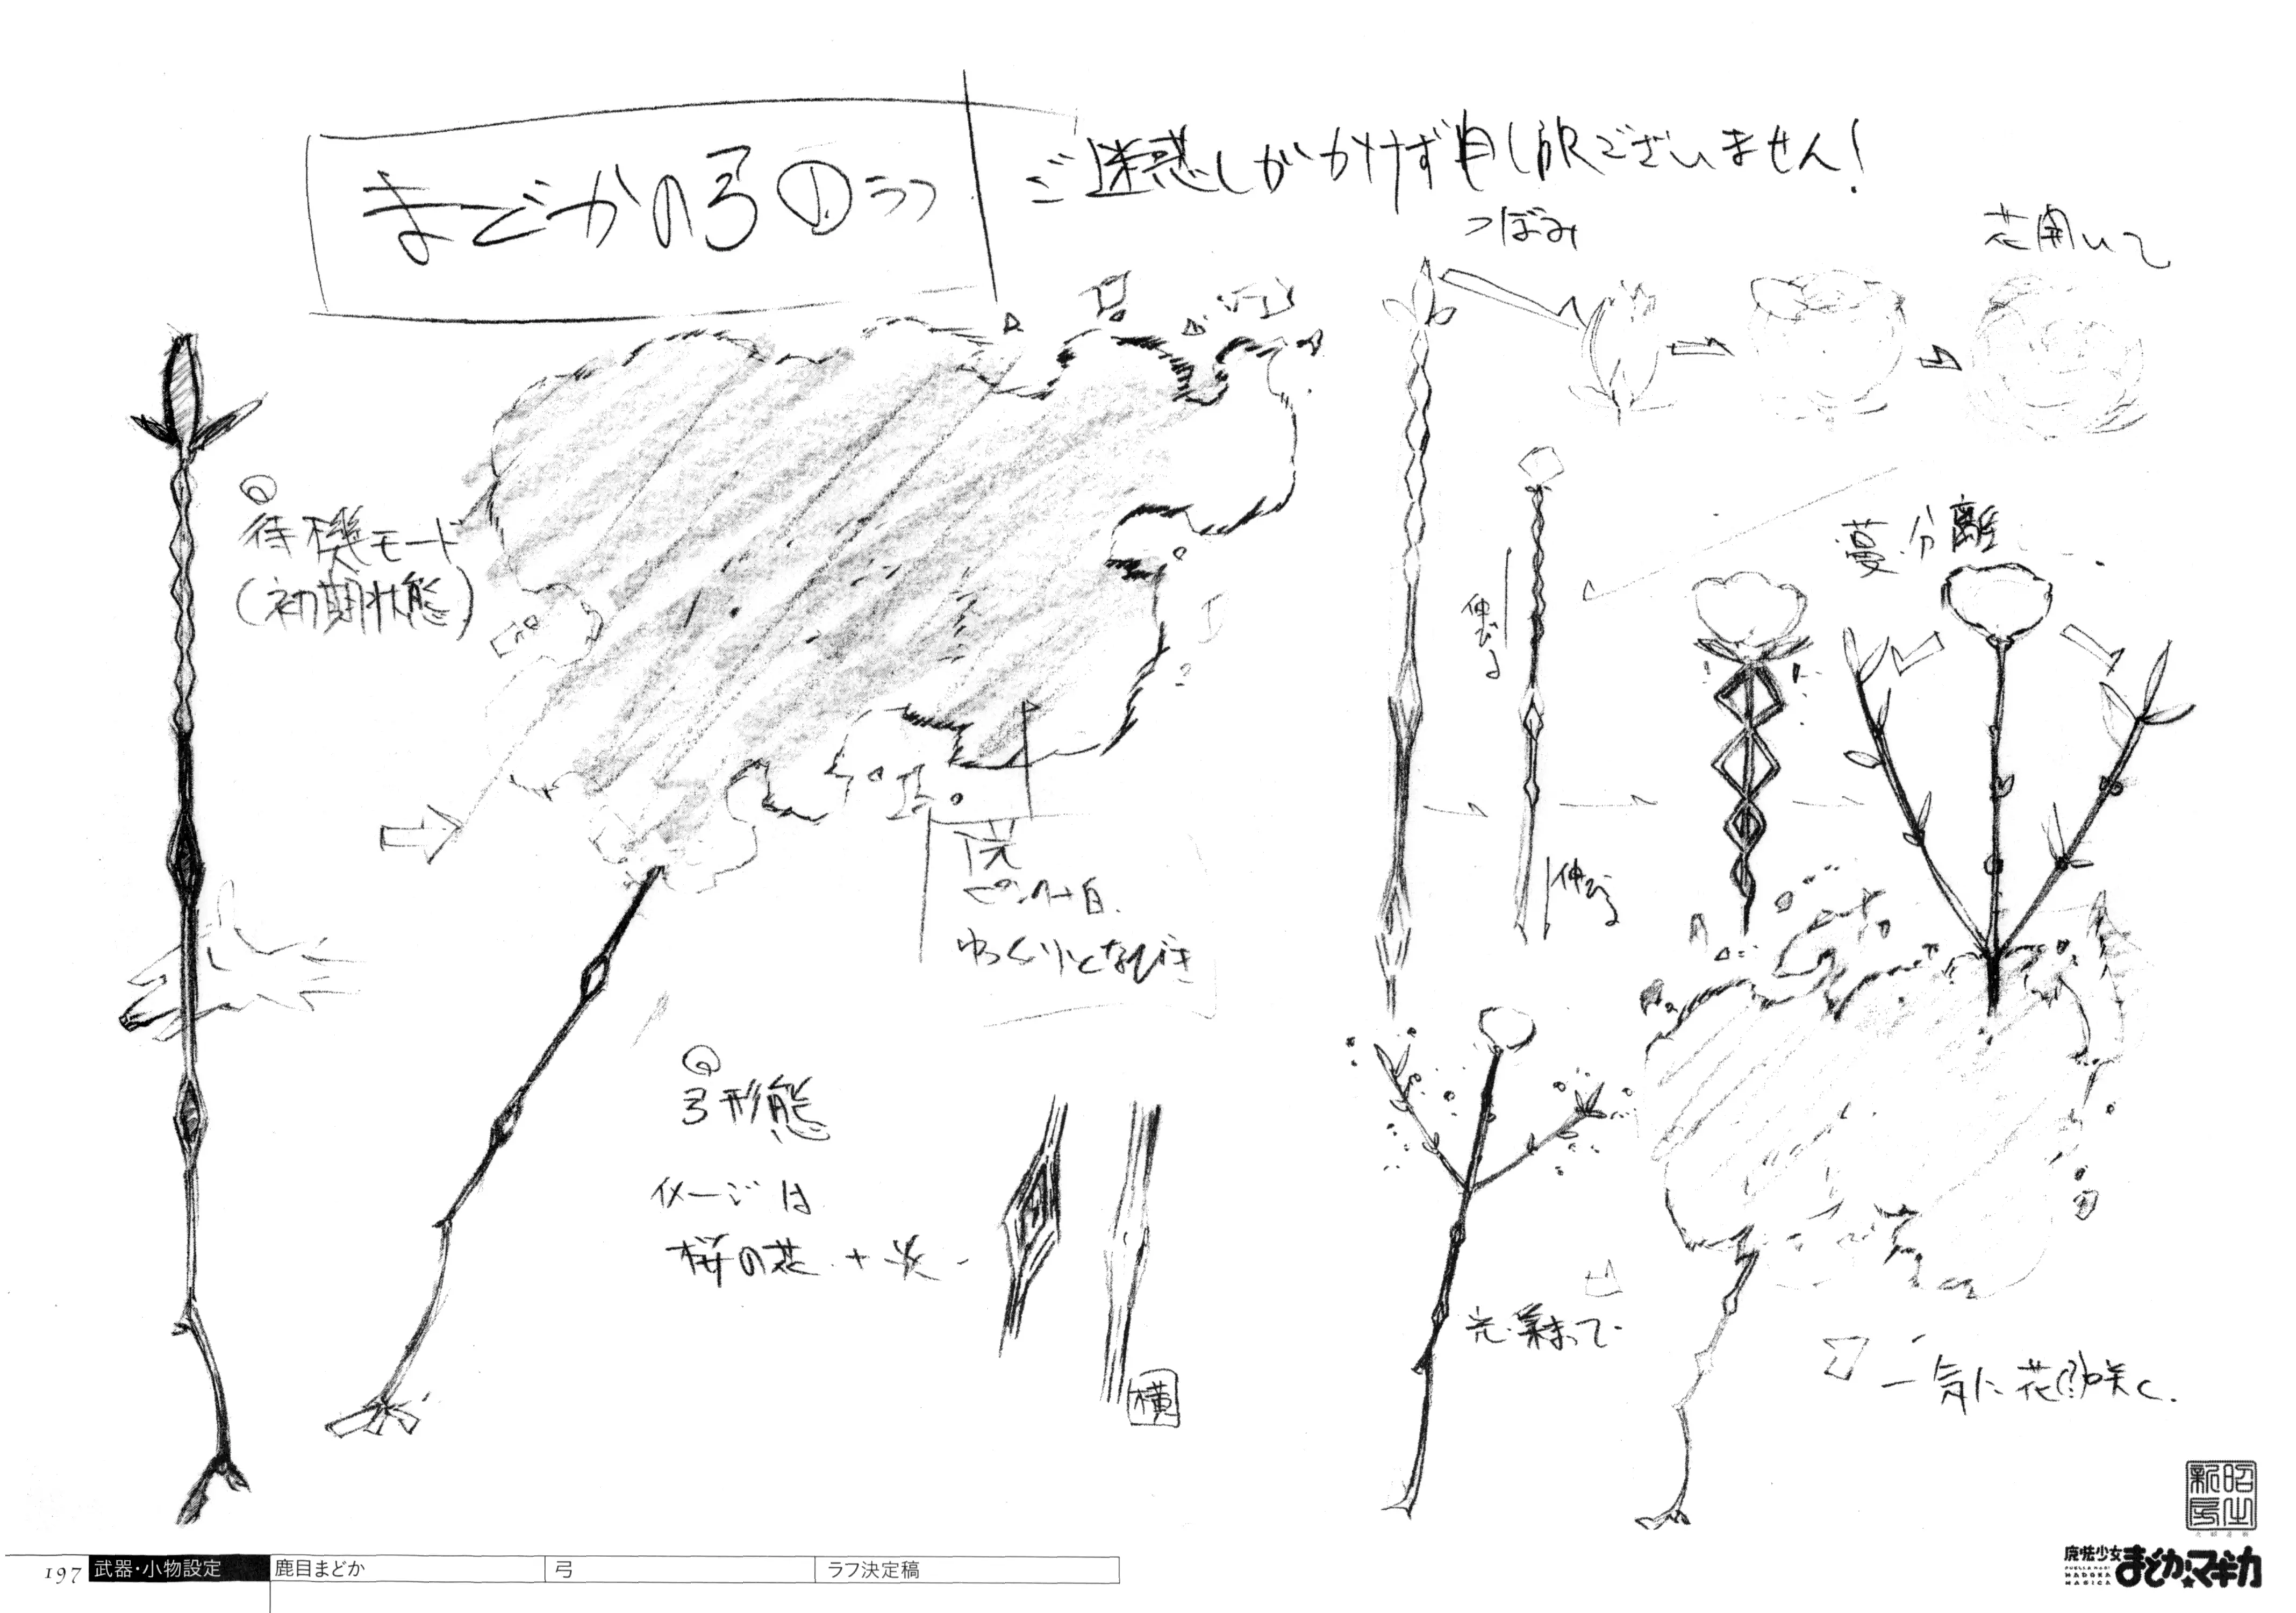 まどかの弓①ラフ
ご迷惑しかかけず申し訳ございません!
つぼみ
花開いて
待機モード
(初期状態)
伸びる
蔓分離
光
ピンク+白
ゆっくりとなびき
伸びる
弓形態
イメージは
桜の花+炎
横
光集まって
一気に花咲く
昭之
新房
197 武器・小物設定 鹿目まどか 弓 ラフ決定稿
魔法少女
まどか★マギカ
PUELLA MAGI
MADOKA
MAGICA